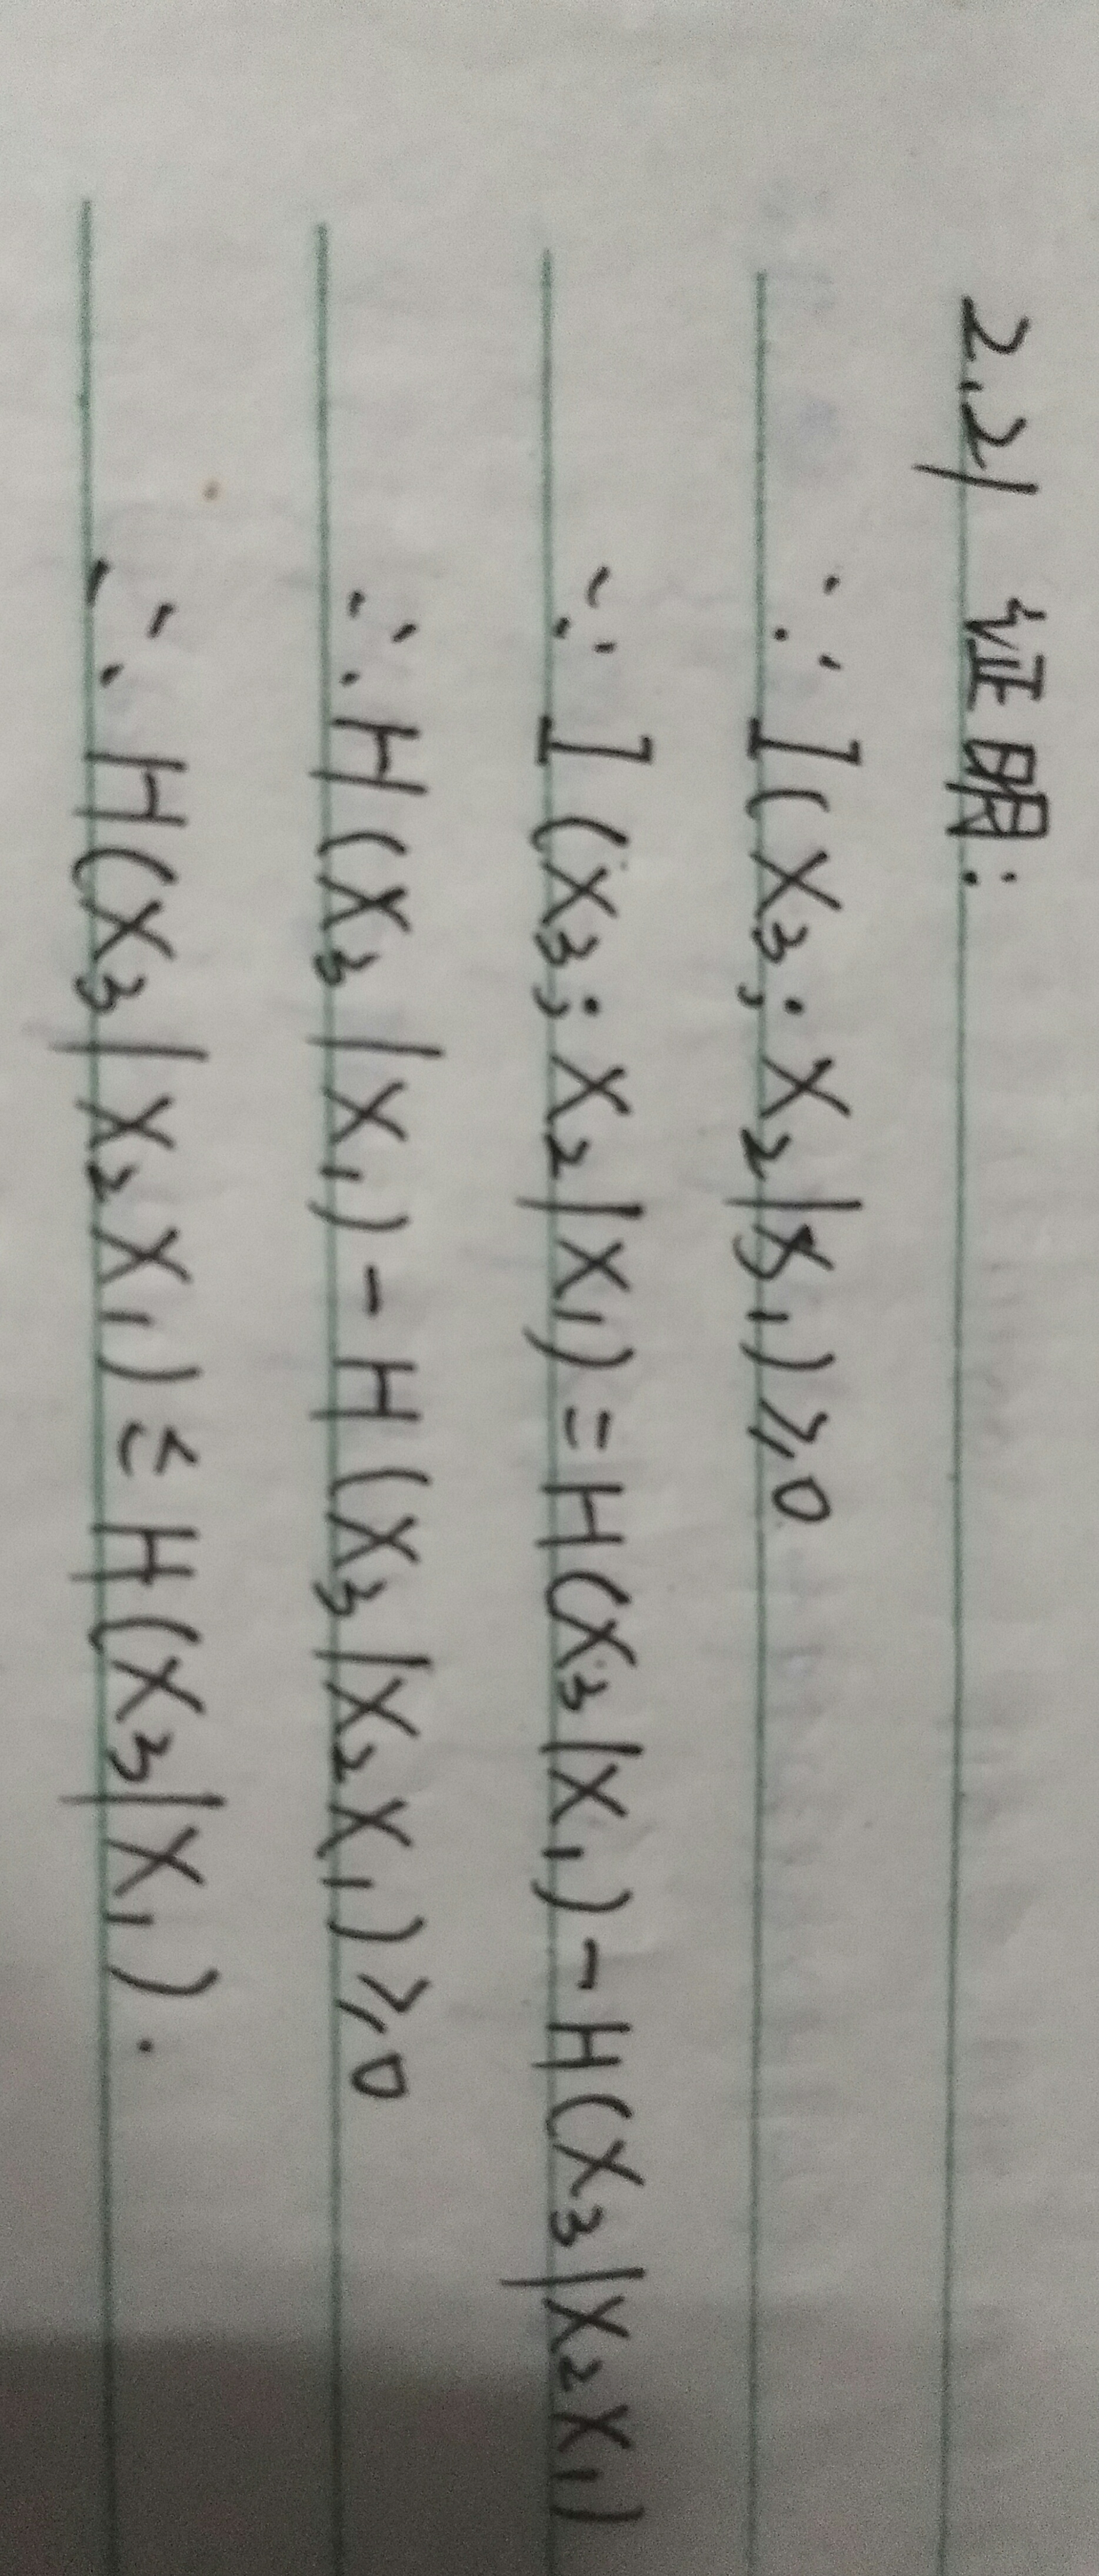 2.21 证明:
∵ I(X₃; X₂|X₁)≥0
∵ I(X₃; X₂|X₁)=H(X₃|X₁)-H(X₃|X₂X₁)
∴ H(X₃|X₁)-H(X₃|X₂X₁)≥0
∴ H(X₃|X₂X₁)≤H(X₃|X₁).